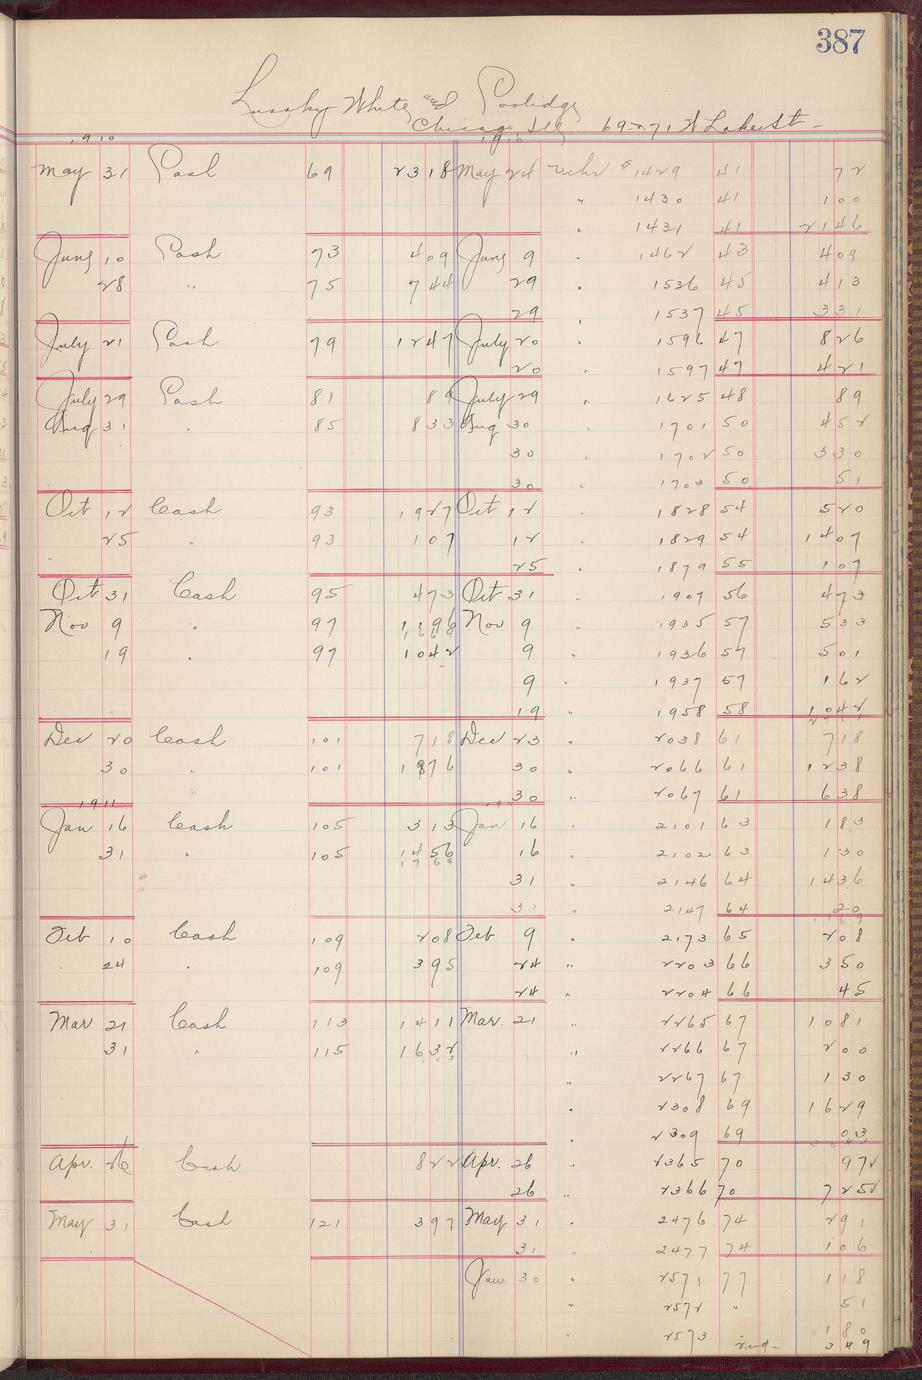 387
Lussky White and Coolidge
Chicago Ills 69 & 71 W Lake St
1910 1910
May 31 Cash 69 2318 May 24 vchr # 1429 41 72
" 1430 41 100
" 1431 41 2146
June 10 Cash 73 409 June 9 " 1462 43 409
28 " 75 744 29 " 1536 45 413
29 " 1537 45 331
July 21 Cash 79 1247 July 20 " 1596 47 826
20 " 1597 47 421
July 29 Cash 81 89 July 29 " 1625 48 89
Aug 31 " 85 833 Aug 30 " 1701 50 452
30 " 1702 50 330
30 " 1703 50 51
Oct 12 Cash 93 1927 Oct 12 " 1828 54 520
25 " 93 107 12 " 1829 54 1407
25 " 1879 55 107
Oct 31 Cash 95 473 Oct 31 " 1907 56 473
Nov 9 " 97 1196 Nov 9 " 1935 57 533
19 " 97 1042 9 " 1936 57 501
9 " 1937 57 162
19 " 1958 58 1042
Dec 20 Cash 101 718 Dec 23 " 2038 61 718
30 " 101 1876 30 " 2066 61 1238
1911 30 " 2067 61 638
Jan 16 Cash 105 313 Jan 16 " 2101 63 183
31 " 105 1456 16 " 2102 63 130
1769
31 " 2146 64 1436
31 " 2147 64 20
Feb 10 Cash 109 208 Feb 9 " 2173 65 208
" 24 " 109 395 24 " 2203 66 350
24 " 2204 66 45
Mar 21 Cash 113 1411 Mar. 21 " 2265 67 1081
31 " 115 1632 " 2266 67 200
" 2267 67 130
" 2308 69 1629
" 2309 69 03
Apr. 26 Cash 822 Apr. 26 " 2365 70 97
26 " 2366 70 725
May 31 Cash 121 397 May 31 " 2476 74 291
31 " 2477 74 106
June 30 " 2571 77 118
" 2572 " 51
" 2573 180
349